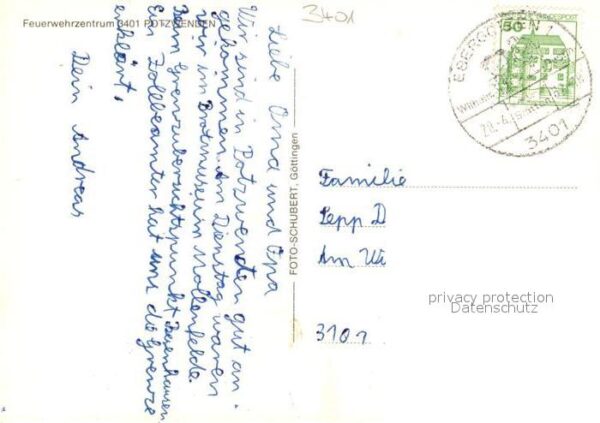 Feuerwehrzentrum 3401 POTZWENDEN
3401
Liebe Oma und Opa
Wir sind in Potzwenden gut an-
gekommen. Am Dienstag waren
wir im Brotmuseum Mollenfelde.
Beim Grenzüberachtspunkt Besenhausen
Ein Zollbeamter hat uns die Grenze
erklärt.
Dein Andreas
FOTO-SCHUBERT, Göttingen
50
BUNDESPOST
EBERGÖTZEN
3401
Familie
Sepp D
Am Wi
3101
privacy protection
Datenschutz